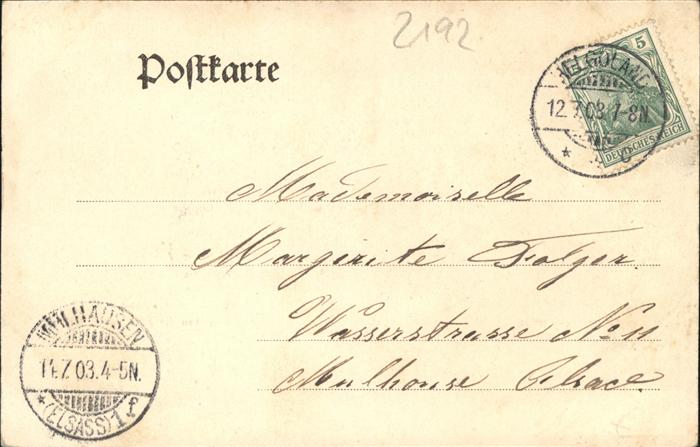 2192
Postkarte
5
DEUTSCHES REICH
HELGOLAND
12.7.03.7-8N.
Mademoiselle
Margerite Folger
Wasserstrasse No 11
Mulhouse Alsace.
MÜLHAUSEN
14.7.03.4-5N.
*(ELSASS)1f